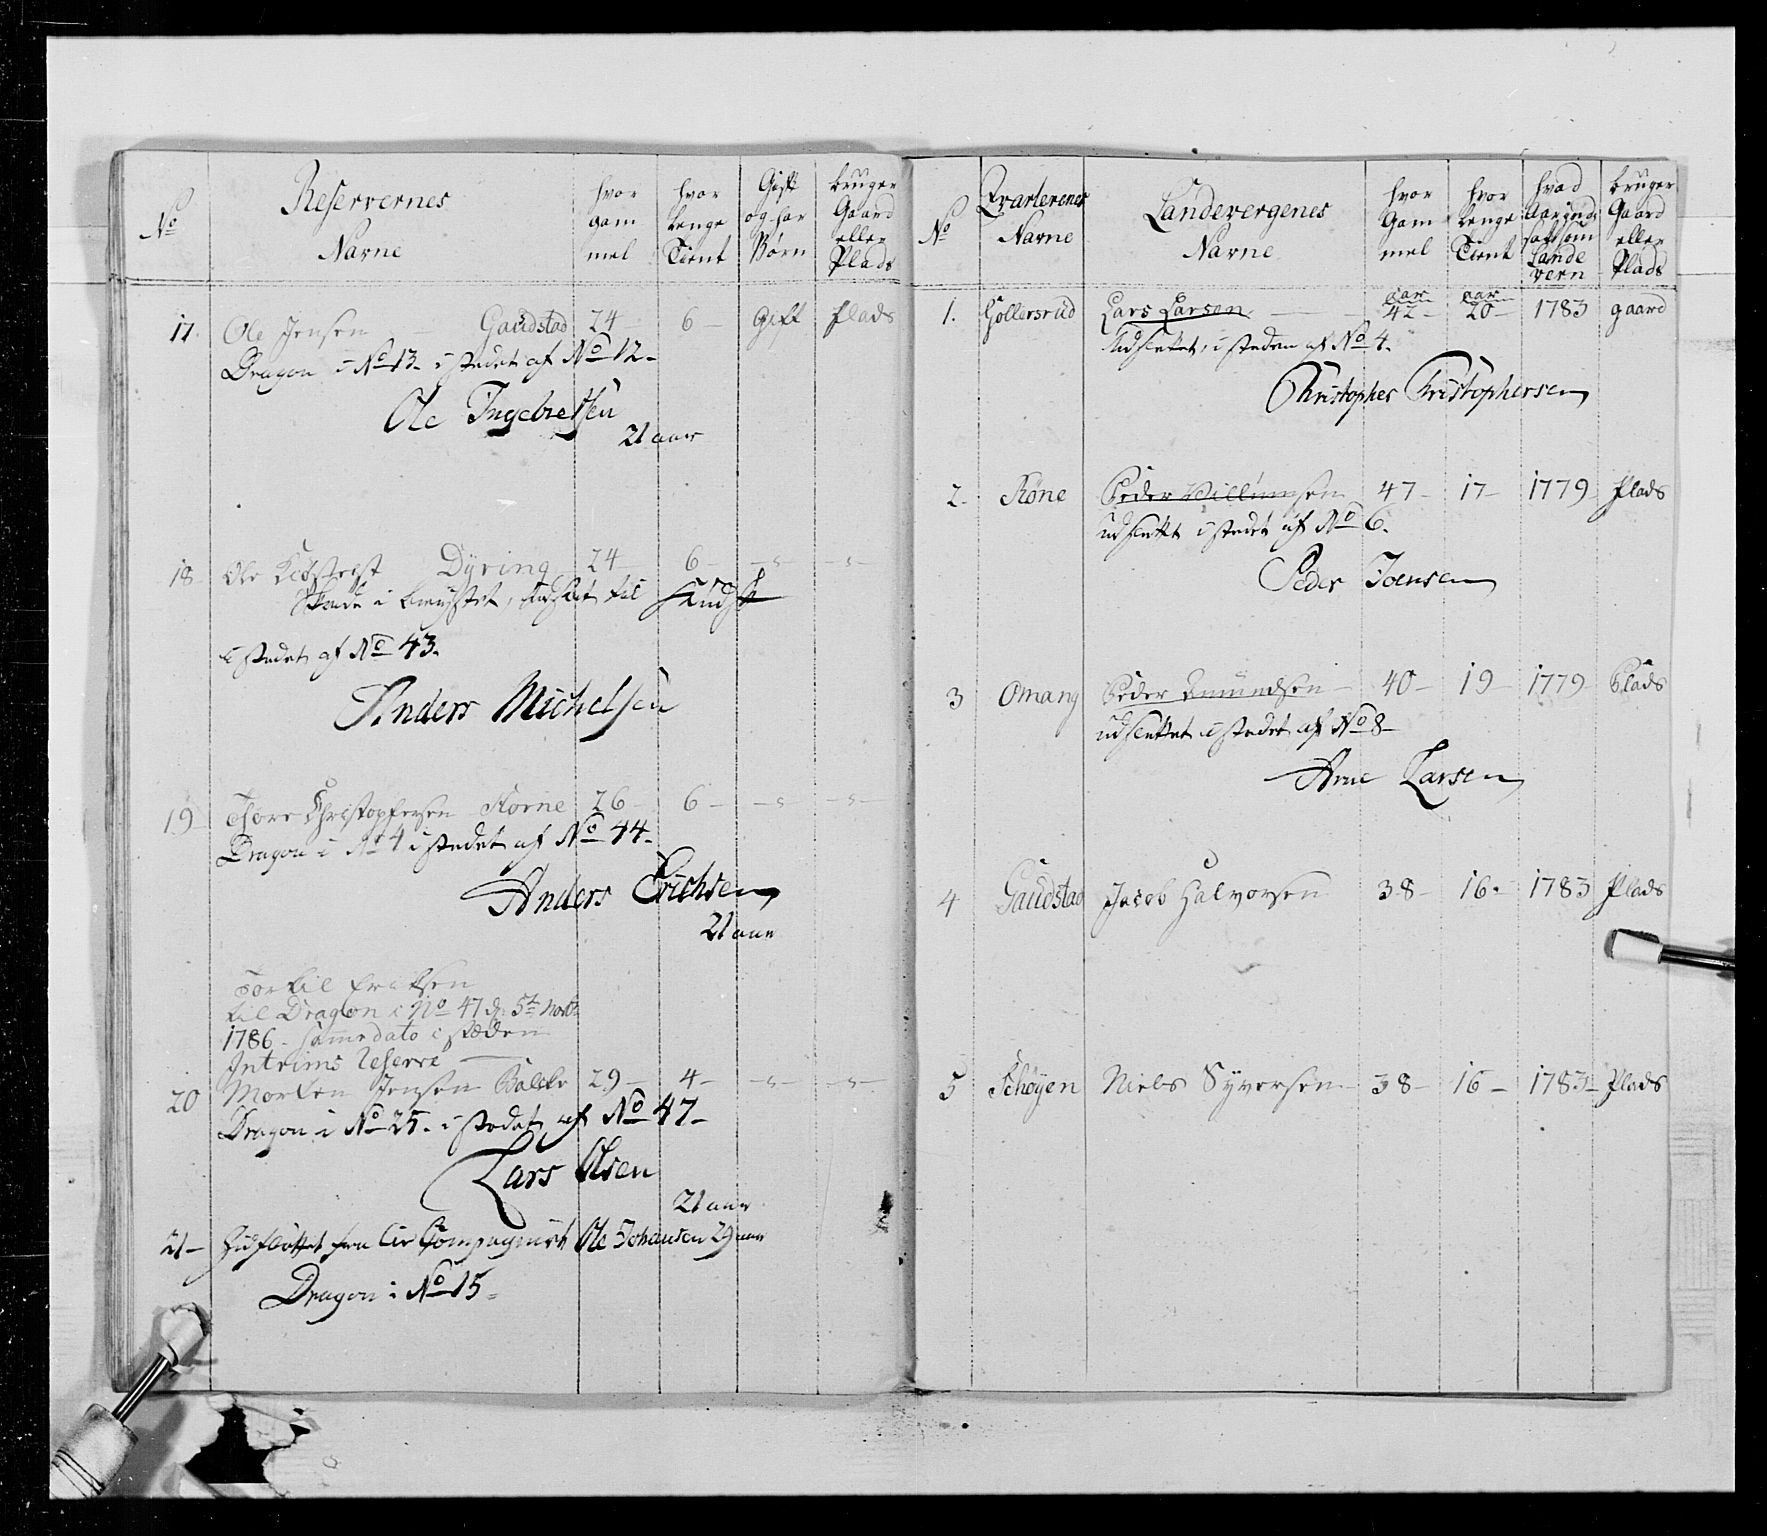 No
Reservernes
Navne
hvor
gam
mel
hvor
lenge
Tient
Gift
og har
Børn
bruger
Gaard
eller
Plads
17. Ole Jensen Gaudstad 24 6 Gift plads
Dragon i No 13. i stædet af No 12.
Ole Ingebretsen
21 aar
18 Ole Dyring 24 6
Skade i brystet, til
i stedet af No 43.
Anders Michelsen
19 Thore Christophersen Korne 26 6
Dragon i No 4 i stedet af No 44.
Anders Erichsen
21 aar
Torkil Eriksen
til Dragon i No 47 d. 5te
1786. samme dato i stæden
Intrims Reserve
20 Morten Jensen Balche 29 4
Dragon i No 25. i stedet af No 47
Lars Olsen
21 aar
21 fra Liv Compagniet Ole Johansen 29 aar
Dragon i No 15
No
Qvarterenes
Navne
Landevergenes
Navne
hvor
Gam
mel
hvor
lenge
Tient
hvad
Aar ind
sat som
Lande
vern
bruger
Gaard
eller
Plads
aar aar
1. Gollersrud Lars Larsen 42 20 1783 gaard
Udslettet, i steden af No 4.
Christopher Christophersen
2. Røne Peder Villumsen 47 17 1779 Plads
udslettet i stedet af No 6.
Peder Joensen
3 Omang Peder Amundsen 40 19 1779 Plads
udslettet i stedet af No 8
Arne Larsen
4 Gaudstad Jacob Halvorsen 38 16. 1783 Plads
5 Schøyen Niels Syversen 38 16 1783 Plads